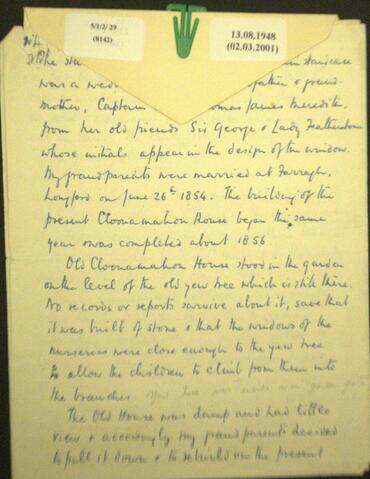 5/1/2/29
(8142)
13.08.1948
(02.03.2001)
The sta staircase
was a wedd father & grand-
mother, Captain omas James Meredith,
from her old friends Sir George & Lady Featherstone
whose initials appear in the design of the window.
My grandparents were married at Farragh,
Longford on June 26th 1854. The building of the
present Cloonamahon House began the same
year & was completed about 1856.
Old Cloonamahon House stood in the garden
on the level of the old yew tree which is still there.
No records or reports survive about it, save that
it was built of stone & that the windows of the
nurseries were close enough to the yew tree
to allow the children to climb from them into
the branches. yew tree was inside main garden gate
The Old House was damp and had little
view & accordingly my grandparents decided
to pull it down & to rebuild on the present